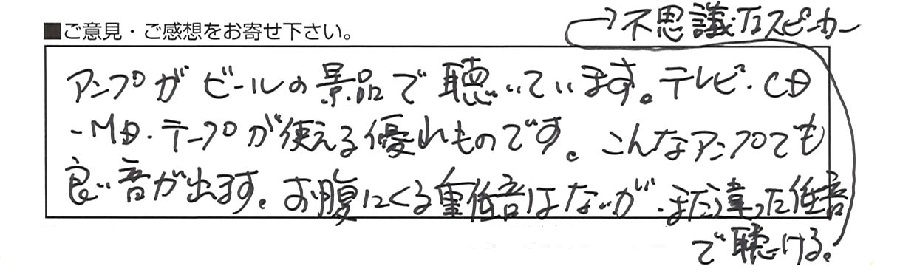 ■ご意見・ご感想をお寄せ下さい。
アンプがビールの景品で聴いています。テレビ・CD
・MD・テープが使える優れものです。こんなアンプでも
良い音が出ます。お腹にくる重低音はないが、また違った低音
で聴ける。
→不思議なスピーカー